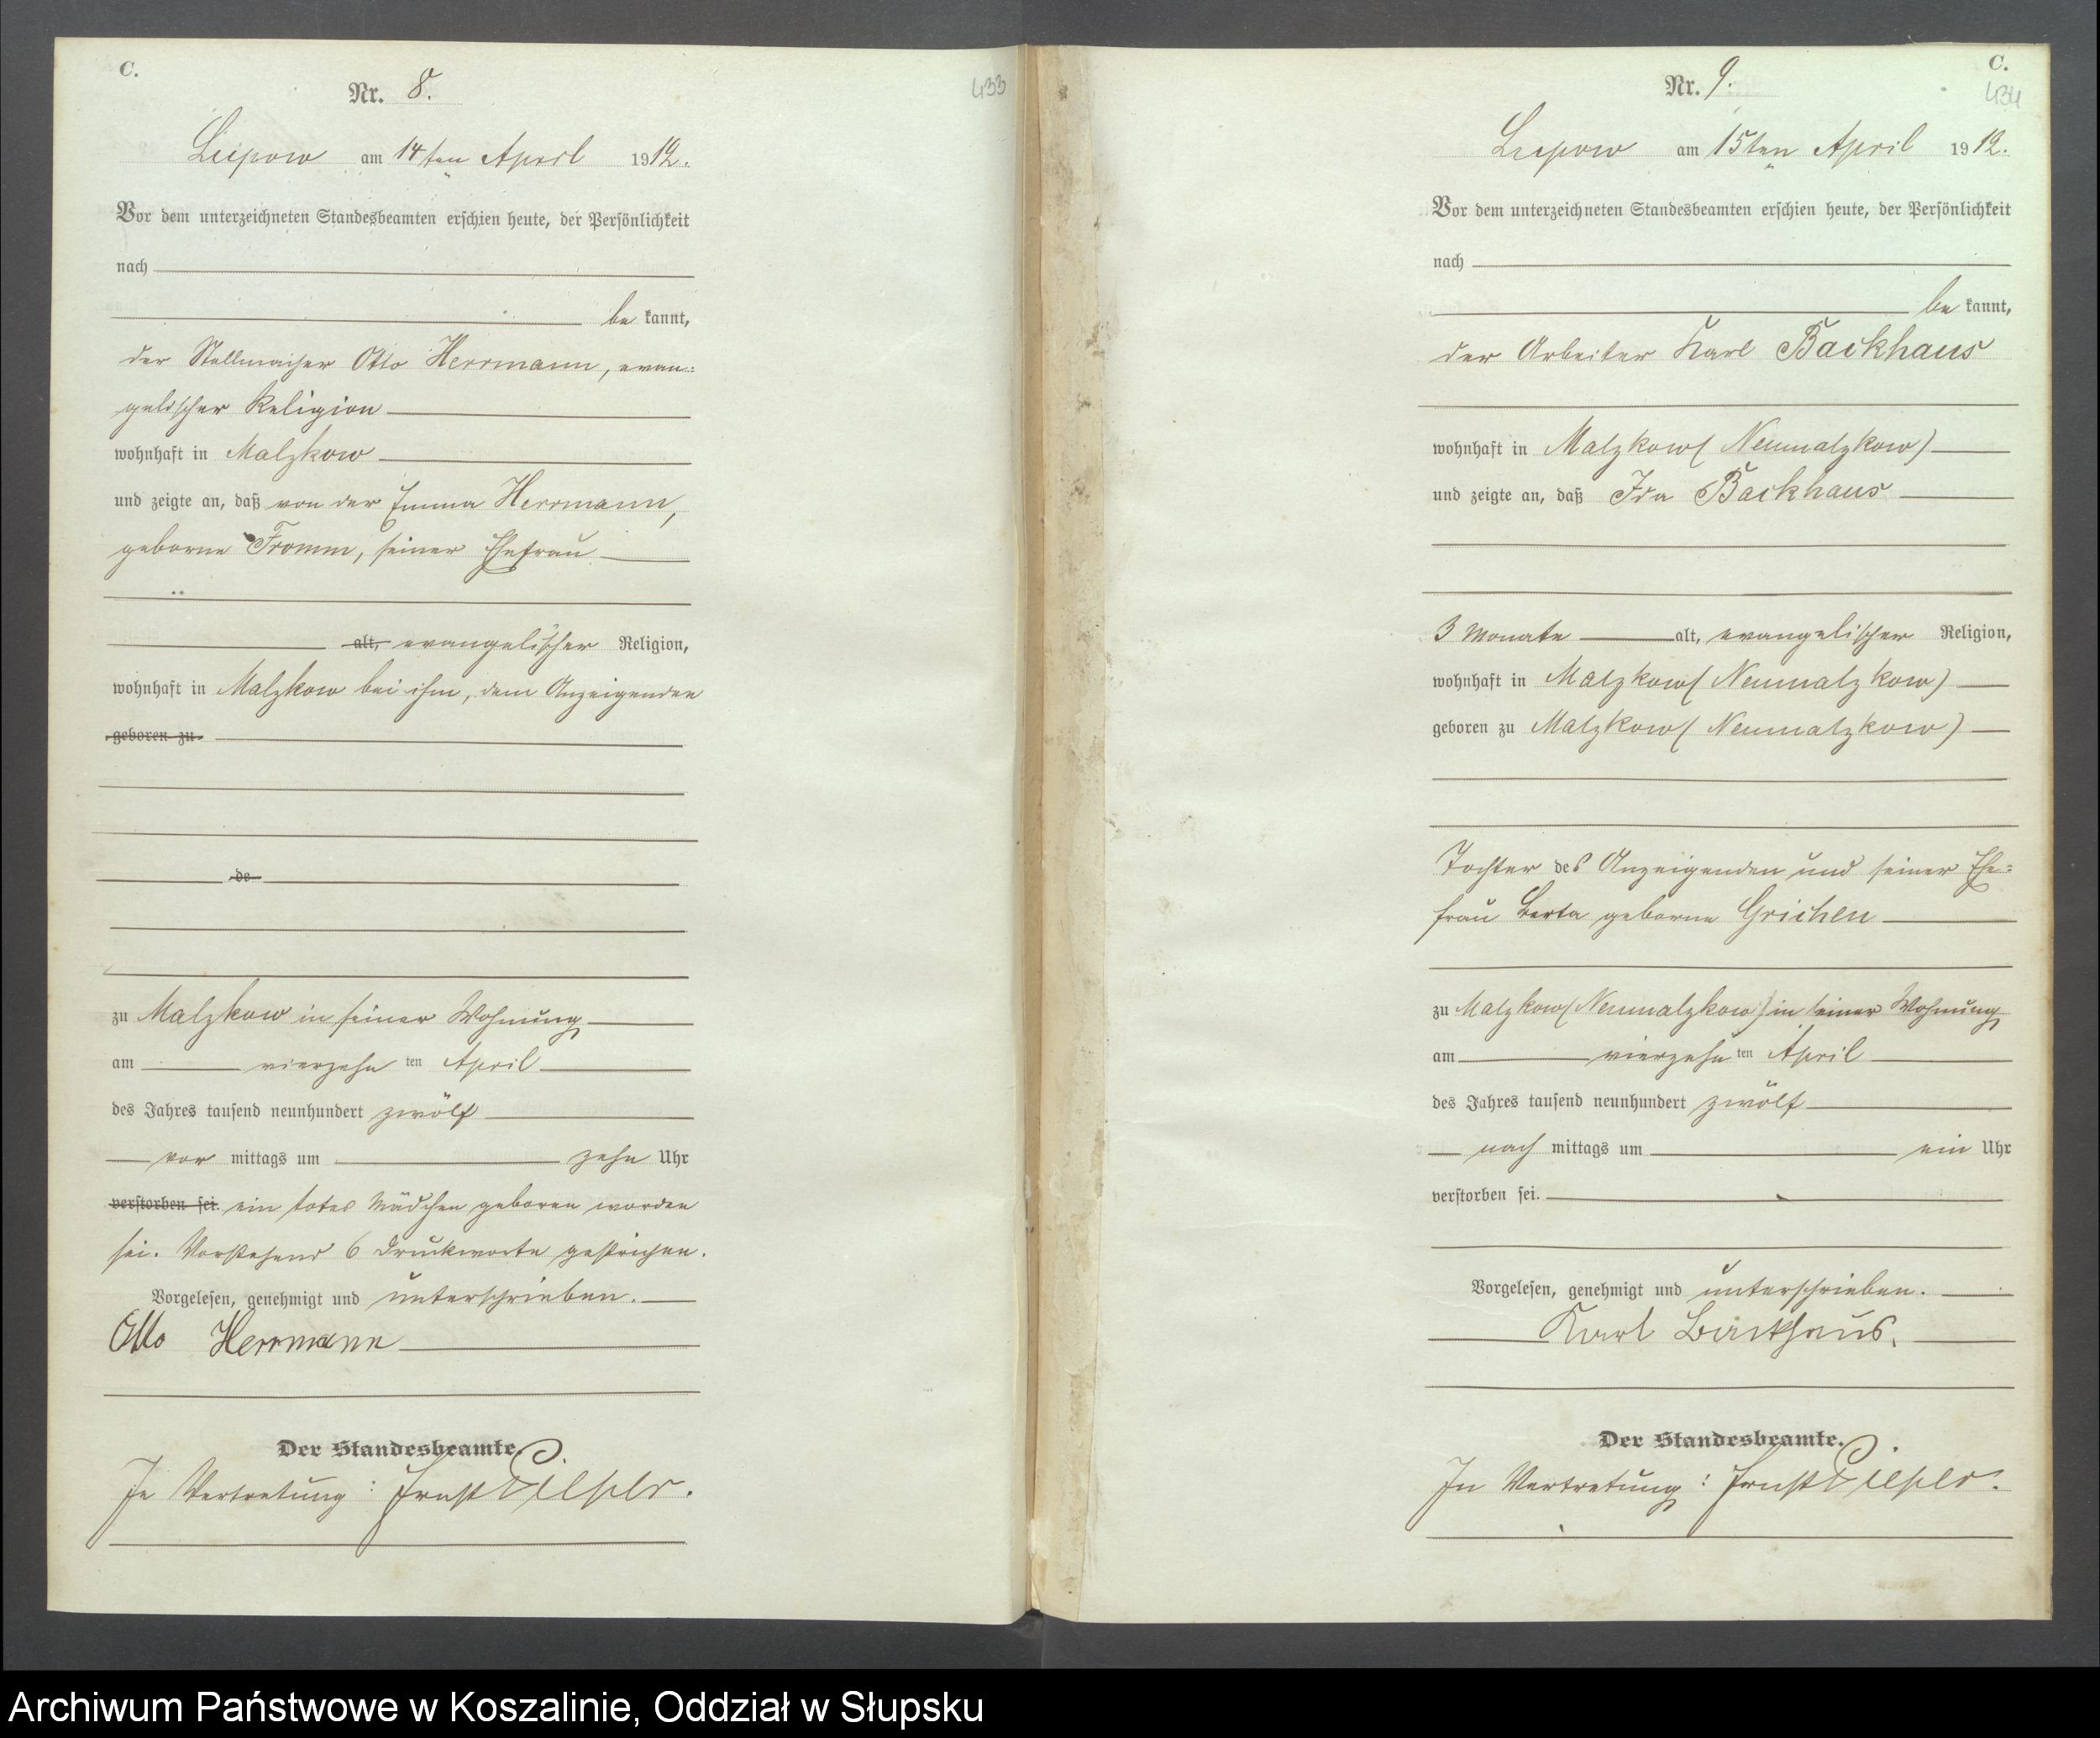 C.
433
Nr. 8.
am 14ten April 1912.
Vor dem unterzeichneten Standesbeamten erschien heute, der Persönlichkeit
nach
be kannt,
der Stellmacher Otto Herrmann, evan:
gelischer Religion
wohnhaft in Malzkow
und zeigte an, daß von der Emma Herrmann,
geborne Fromm, seiner Ehefrau
alt, evangelischer Religion,
wohnhaft in Malzkow bei ihm, dem Anzeigenden
geboren zu
de
zu Malzkow in seiner Wohnung
am vierzehn ten April
des Jahres tausend neunhundert zwölf
vor mittags um zehn Uhr
verstorben sei. ein totes Mädchen geboren worden
sei. Vorstehend 6 Druckworte gestrichen.
Vorgelesen, genehmigt und unterschrieben.
Otto Herrmann
Der Standesbeamte.
In Vertretung: Ernst
C.
434
Nr. 9.
am 15ten April 1912.
Vor dem unterzeichneten Standesbeamten erschien heute, der Persönlichkeit
nach
be kannt,
der Arbeiter Karl Backhaus
wohnhaft in Malzkow (Neumalzkow)
und zeigte an, daß Ida Backhaus
3 Monate alt, evangelischer Religion,
wohnhaft in Malzkow (Neumalzkow)
geboren zu Malzkow (Neumalzkow)
Tochter des Anzeigenden und seiner Ehe=
frau Berta geborne
zu Malzkow (Neumalzkow) in seiner Wohnung
am vierzehn ten April
des Jahres tausend neunhundert zwölf
nach mittags um ein Uhr
verstorben sei.
Vorgelesen, genehmigt und unterschrieben.
Karl Backhaus.
Der Standesbeamte.
In Vertretung: Ernst
Archiwum Państwowe w Koszalinie, Oddział w Słupsku